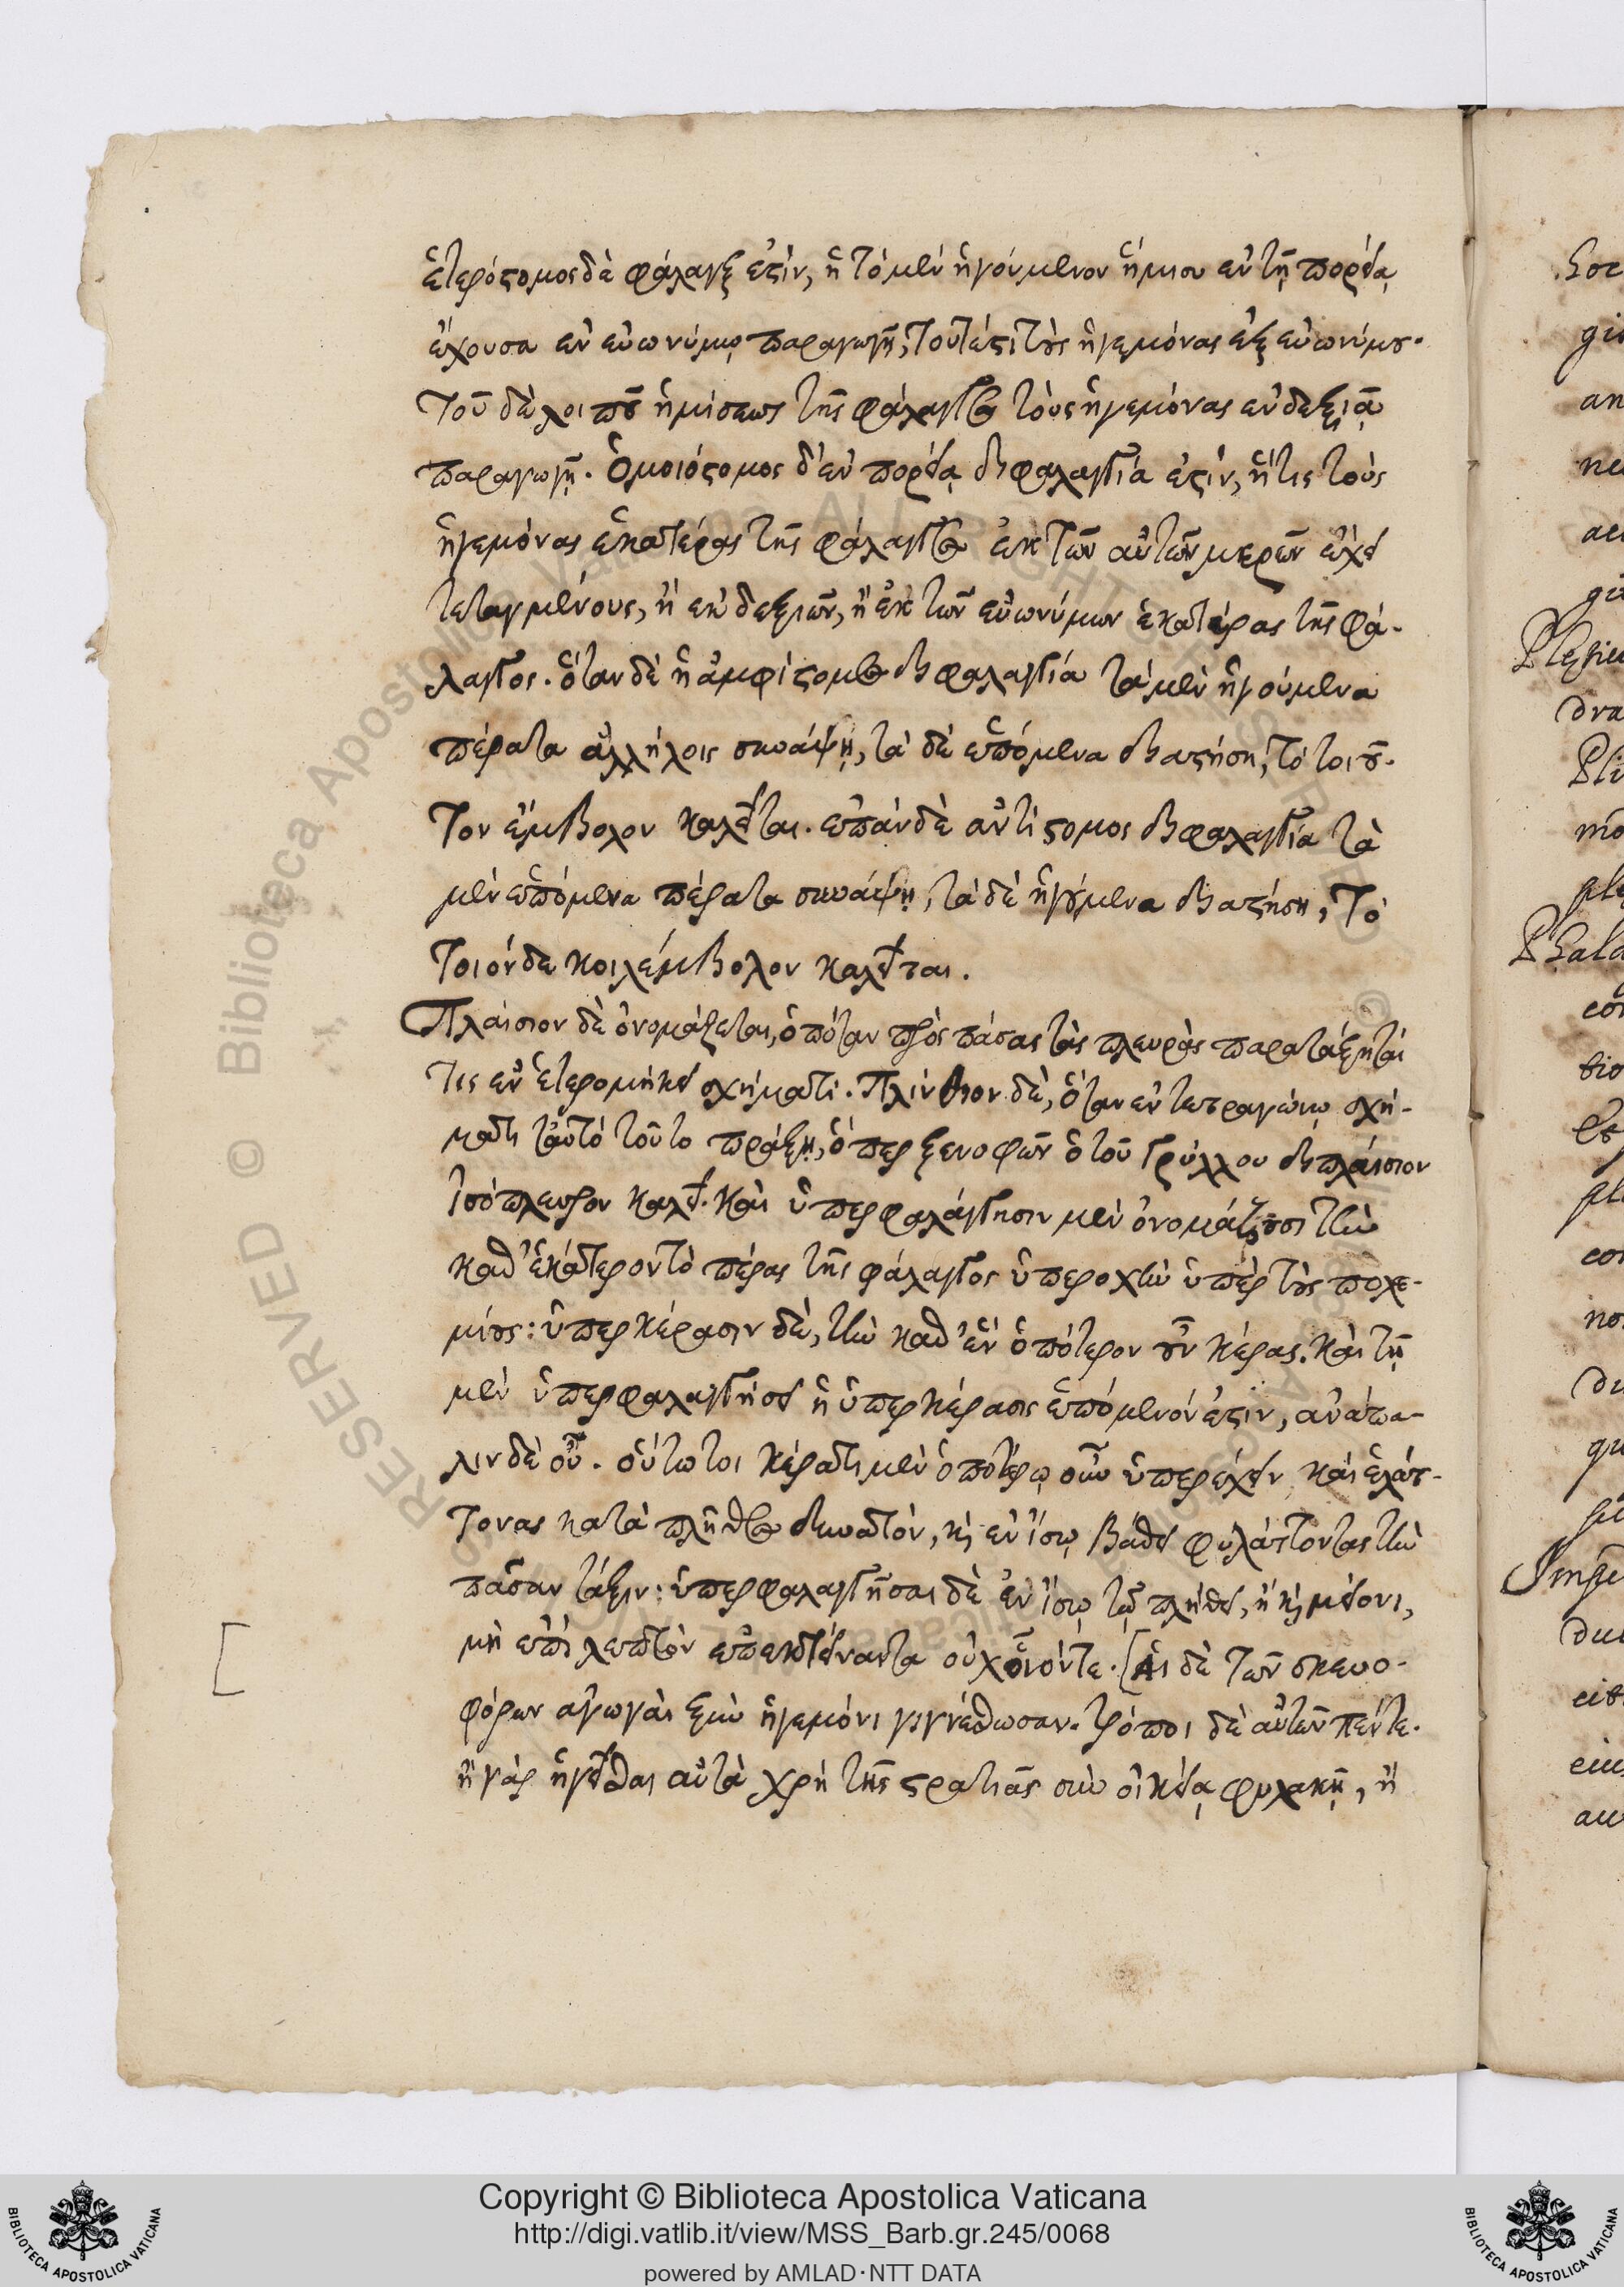 ἑτερόστομος δὲ φάλαγξ ἐστὶν, ἡ τὸ μὲν ἡγούμενον ἥμισυ ἐν τῇ πορείᾳ
ἔχουσα ἐν εὐωνύμῳ παραγωγῇ, τουτέστι τοὺς ἡγεμόνας ἐξ εὐωνύμου.
τοῦ δὲ λοιποῦ ἡμίσεως τῆς φάλαγγος τοὺς ἡγεμόνας ἐν δεξιᾷ
παραγωγῇ. Ὁμοιόστομος δ' ἐν πορείᾳ διφαλαγγία ἐστὶν, ἥτις τοὺς
ἡγεμόνας ἑκατέρας τῆς φάλαγγος ἐκ τῶν αὐτῶν μερῶν ἔχει
τεταγμένους, ἢ ἐκ δεξιῶν, ἢ ἐκ τῶν εὐωνύμων ἑκατέρας τῆς φά-
λαγγος. ὅταν δὲ ἡ ἀμφίστομος διφαλαγγία τὰ μὲν ἡγούμενα
πέρατα ἀλλήλοις συνάψῃ, τὰ δὲ ἑπόμενα διαστήσῃ, τὸ τοιοῦ-
τον ἔμβολον καλεῖται. ἐπὰν δὲ ἀντίστομος διφαλαγγία τὰ
μὲν ἑπόμενα πέρατα συνάψῃ, τὰ δὲ ἡγούμενα διαστήσῃ, τὸ
τοιόνδε κοιλέμβολον καλεῖται.
Πλαίσιον δὲ ὀνομάζεται, ὁπόταν πρὸς πάσας τὰς πλευρὰς παρατάξηταί
τις ἐν ἑτερομήκει σχήματι. Πλίνθιον δὲ, ὅταν ἐν τετραγώνῳ σχή-
ματι ταὐτὸ τοῦτο πράξῃ, ὅπερ ξενοφῶν ὁ τοῦ Γρύλλου διπλαίσιον
ἰσόπλευρον καλεῖ. Καὶ ὑπερφαλάγγησιν μὲν ὀνομάζουσι τὴν
καθ' ἑκάτερον τὸ πέρας τῆς φάλαγγος ὑπεροχὴν ὑπὲρ τοὺς πολε-
μίους: ὑπερκέρασιν δὲ, τὴν καθ' ἓν ὁπότερον οὖν κέρας. Καὶ τῇ
μὲν ὑπερφαλαγγήσει ἡ ὑπερκέρασις ἑπόμενόν ἐστιν, ἀνάπα-
λιν δὲ οὔ. οὕτω τοι κέρατι μὲν ὁποτέρῳ οὖν ὑπερέχειν καὶ ἐλάτ-
τονας κατὰ πλῆθος δυνατόν, καὶ ἐν ἴσῳ βάθει φυλάττοντας τὴν
πᾶσαν τάξιν: ὑπερφαλαγγῆσαι δὲ ἐν ἴσῳ τῷ πλήθει, ἢ καὶ μείονι,
μὴ ἐπὶ λεπτὸν ἐπεκτείναντα οὐχ οἷόντε. [Αἱ δὲ τῶν σκευο-
φόρων ἀγωγαὶ ξὺν ἡγεμόνι γιγνέσθωσαν. τρόποι δὲ αὐτῶν πέντε.
ἢ γὰρ ἡγεῖσθαι αὐτὰ χρὴ τῆς στρατιᾶς σὺν οἰκείᾳ φυλακῇ, ἢ
Copyright © Biblioteca Apostolica Vaticana
http://digi.vatlib.it/view/MSS_Barb.gr.245/0068
powered by AMLAD·NTT DATA